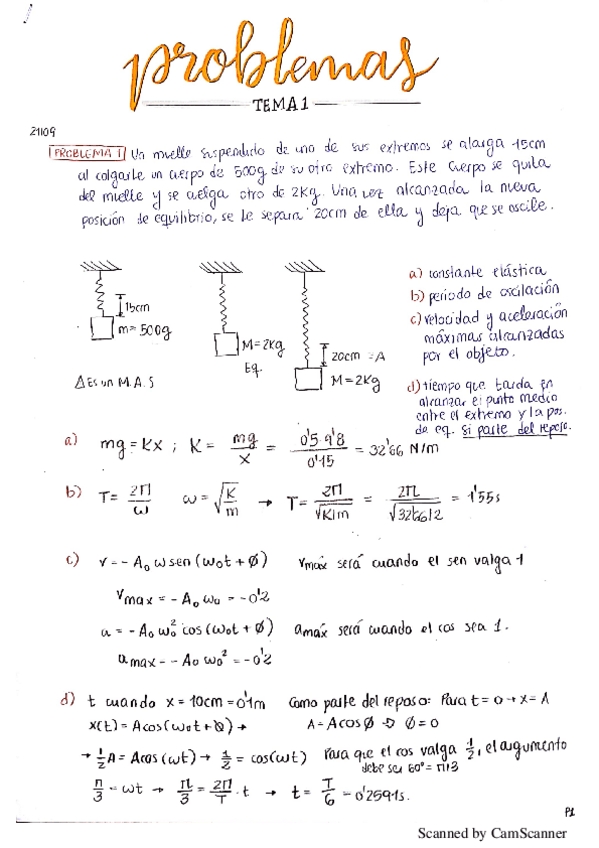 problemas
TEMA 1
21109
PROBLEMA 1 Un muelle suspendido de uno de sus extremos se alarga 15cm
al colgarle un cuerpo de 500g de su otro extremo. Este cuerpo se quita
del muelle y se cuelga otro de 2Kg. Una vez alcanzada la nueva
posición de equilibrio, se le separa 20cm de ella y deja que se oscile.
a) constante elástica
b) periodo de oscilación
c) velocidad y aceleración
máximas alcanzadas
por el objeto.
d) tiempo que tarda en
alcanzar el punto medio
entre el extremo y la pos.
de eq. si parte del reposo.
15cm
m = 500g
M = 2Kg
Eq.
20cm = A
M = 2Kg
Δ Es un M.A.S
a) mg = Kx ; K = mg/x = 0'5·9'8/0'15 = 32'66 N/m
b) T = 2π/ω ω = √K/m → T = 2π/√K/m = 2π/√32'66/2 = 1'55s
c) v = - A₀ ω sen (ω₀t + Ø) vmáx será cuando el sen valga 1
vmax = - A₀ ω₀ = -0'2
a = - A₀ ω₀² cos (ω₀t + Ø) amáx será cuando el cos sea 1.
amax = - A₀ ω₀² = -0'2
d) t cuando x = 10cm = 0'1m Como parte del reposo: Para t = 0 → x = A
x(t) = A cos (ω₀t + Ø) → A = A cos Ø ⇒ Ø = 0
→ 1/2 A = A cos (ωt) → 1/2 = cos (ωt) Para que el cos valga 1/2, el argumento
debe ser 60° = π/3
π/3 = ωt → π/3 = 2π/T · t → t = T/6 = 0'2591s.
P1
Scanned by CamScanner